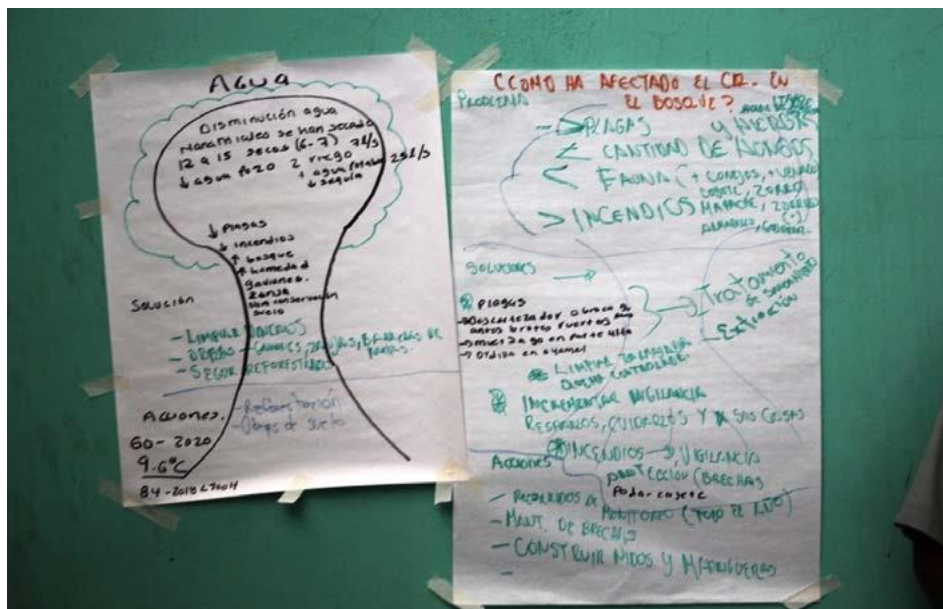 AGUA
Disminución agua
Manantiales se han secado
12 a 15 secos (6-7) 7 l/s
↓ agua pozo 2 riego
+ agua potable 25 l/s
↓ sequía
↓ Plagas
↓ incendios
↑ bosque
↑ humedad
gaviones.
zanja
conservación
suelo
Solución
- LIMPIAR
- OBRAS - ZANJAS, BARRERAS DE
- SEGUIR REFORESTANDO
Acciones.
- Reforestación
- Obras de suelo
60 - 2020
9.6°C
84 - 2018
¿COMO HA AFECTADO EL EN
EL BOSQUE?
PROBLEMA
- > PLAGAS Y
< CANTIDAD DE HONGOS
< FAUNA (+ CONEJOS, + VENADO
COYOTE, ZORRO
> INCENDIOS MAPACHE, ZORRILLO
SOLUCIONES
Plagas
→ Descortezador
antes brotes fuertes
→ muerdago en parte alta
→ en oyamel
→ Tratamiento
DE SANEAMIENTO
- Extracción
LIMPIA
QUEMA CONTROLADA
INCREMENTAR VIGILANCIA
RESPETARLOS, CUIDARLOS Y A SUS CASAS
INCENDIOS → VIGILANCIA
PROTECCIÓN (BRECHAS
Poda-
ACCIONES
- RECORRIDOS DE MONITOREO (TODO EL AÑO)
- MANT. DE BRECHAS
- CONSTRUIR NIDOS Y MADRIGUERAS
-